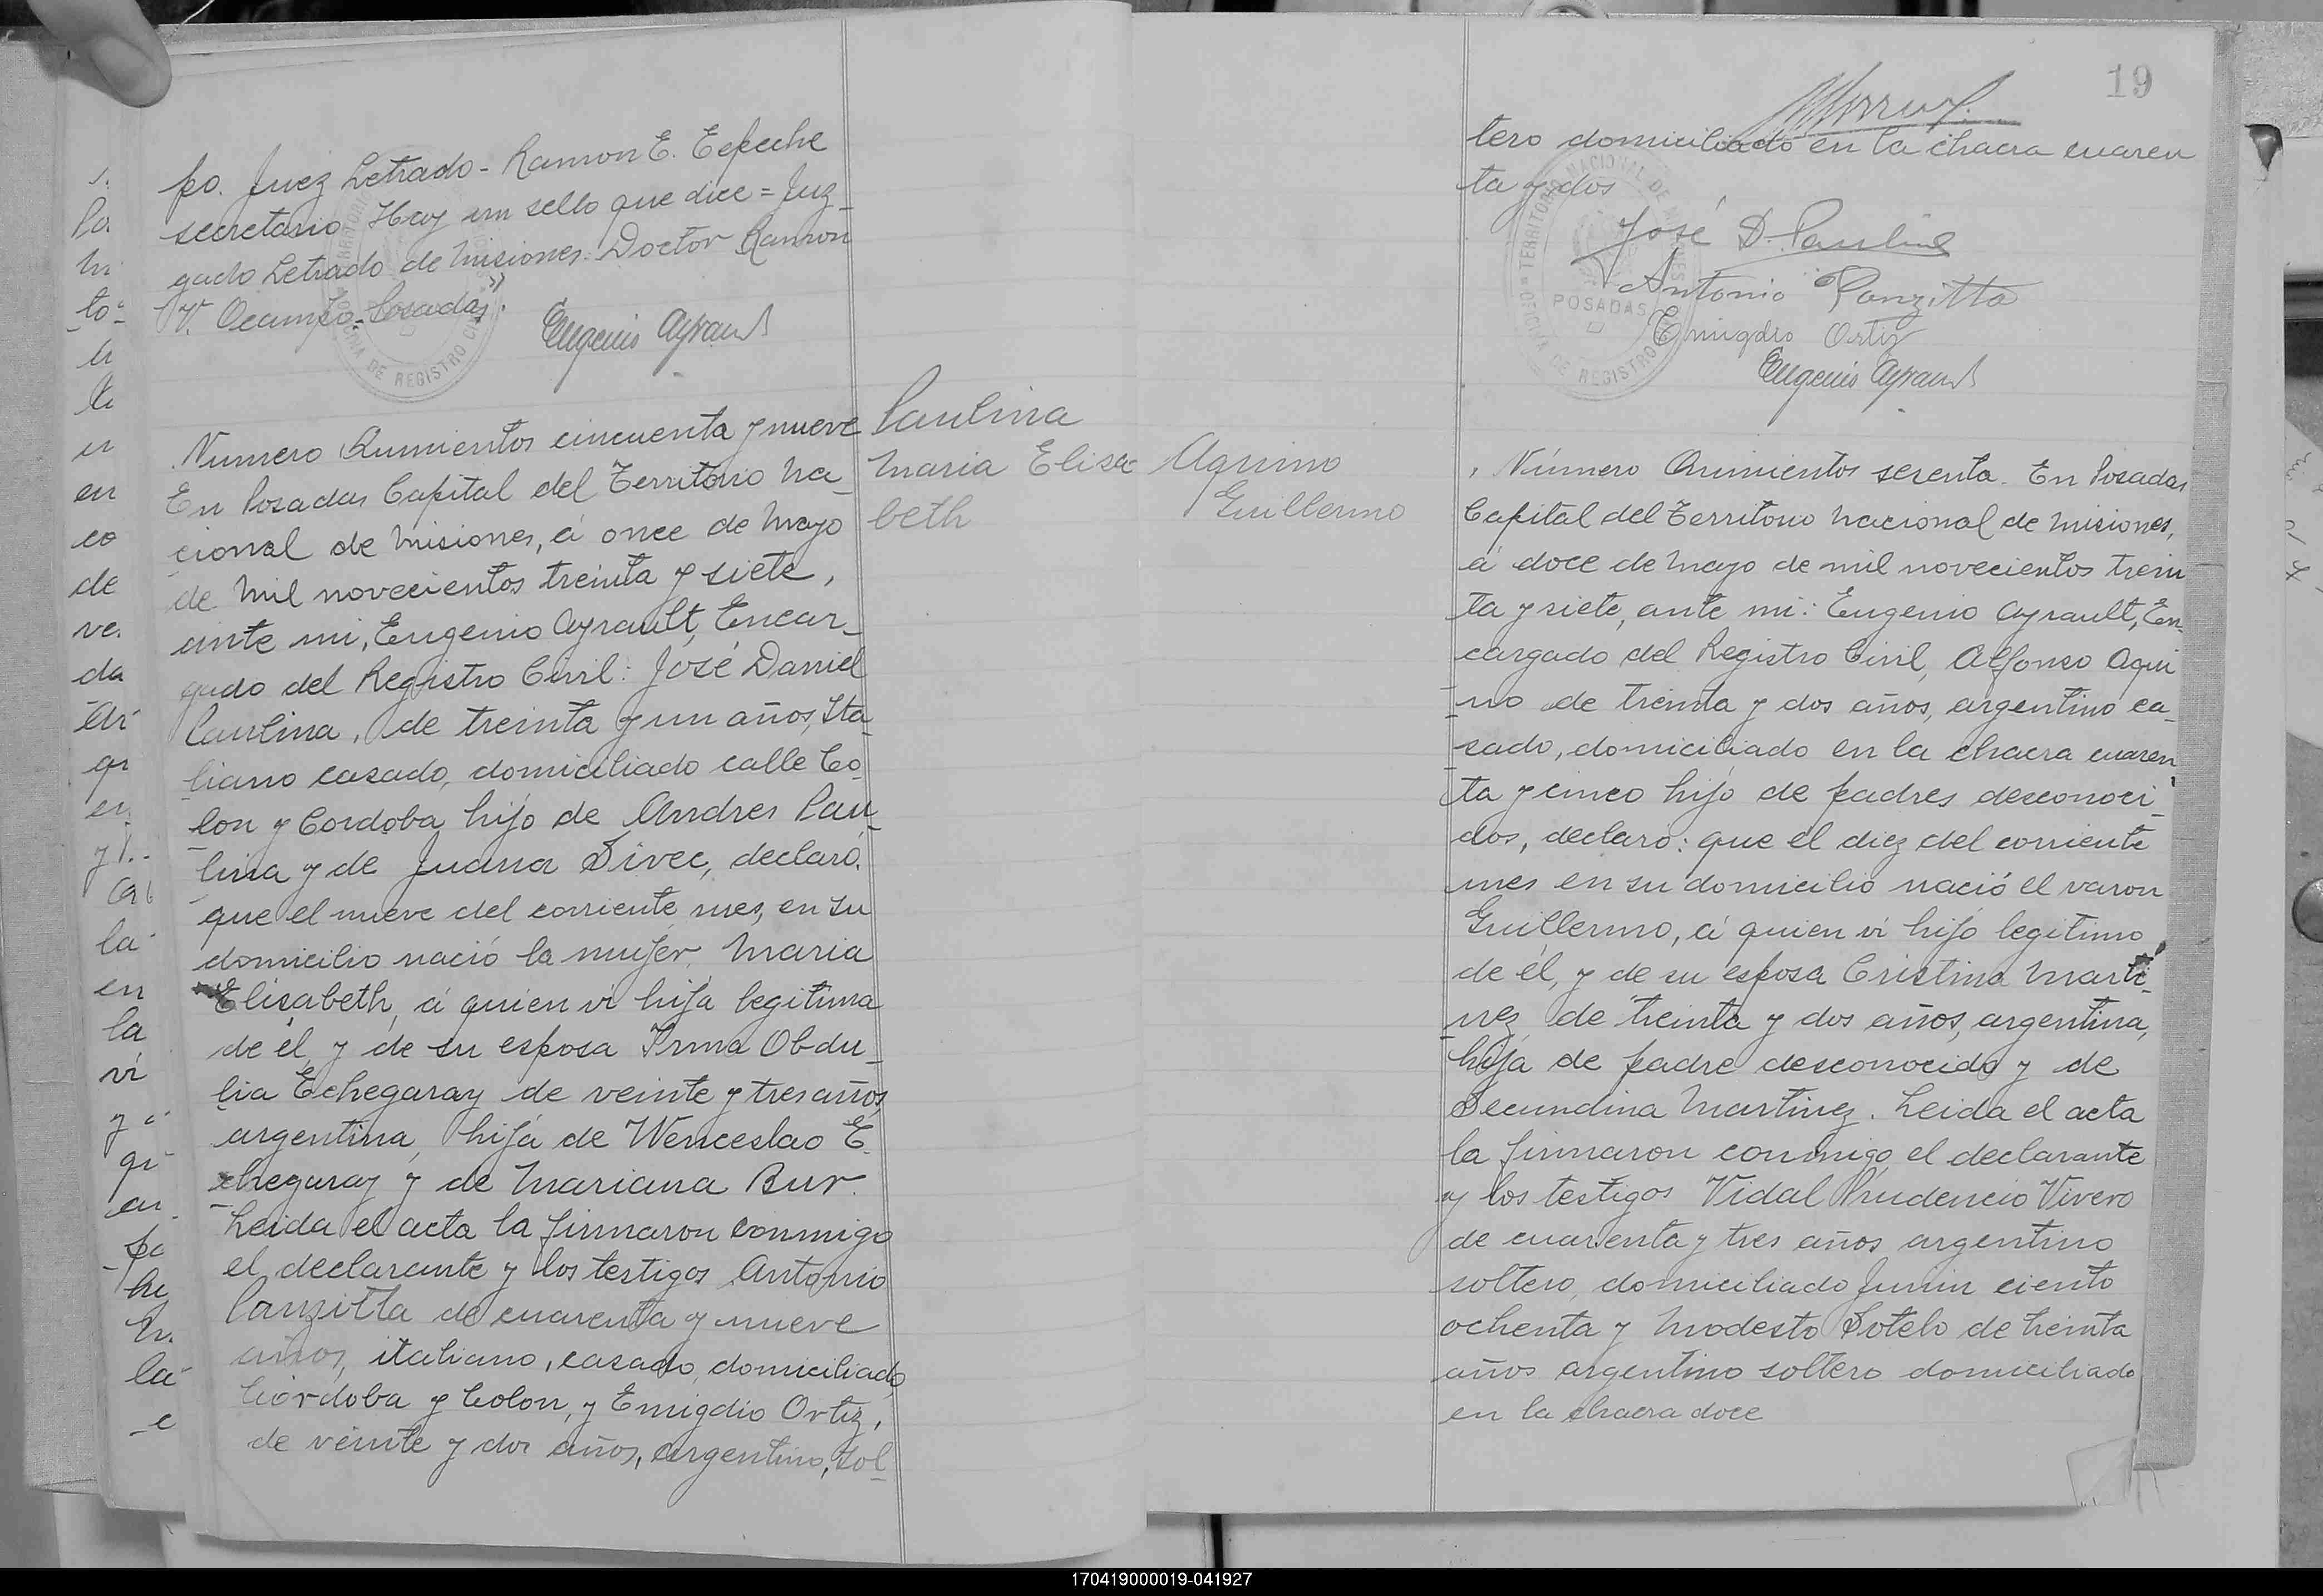 po. Juez Letrado - Ramon E. Epeche
secretario Hay un sello que dice = Juz_
gado Letrado de Misiones. Doctor Ramon
V. Ocampo - Posadas".
Eugenio Ayrault
Numero Quinientos cincuenta y nueve
En Posadas Capital del Territorio Na_
cional de Misiones, á once de Mayo
de Mil novecientos treinta y siete,
ante mi, Eugenio Ayrault, Encar_
gado del Registro Civil: José Daniel
Paulina, de treinta y un años, Ita_
liano casado, domiciliado calle Co_
lon y Cordoba hijo de Andres Pau_
lina y de Juana Sivec, declaró.
que el nueve del corriente mes, en su
domicilio nació la mujer Maria
Elisabeth, á quien ví hija legitima
de él y de su esposa Irma Obdu_
lia Echegaray de veinte y tres años,
argentina, hija de Wenceslao E_
chegaray y de Mariana Bur.
Leida el acta la firmaron conmigo
el declarante y los testigos Antonio
Panzitta de cuarenta y nueve
años, italiano, casado, domiciliado
Córdoba y Colon, y Emigdio Ortiz,
de veinte y dos años, argentino, sol_
Paulina
Maria Elisa-
beth
19
tero domiciliado en la chacra cuaren
ta y dos
José D. Paulina
Antonio Panzitta
Emigdio Ortiz
Eugenio Ayrault
TERRITORIO NACIONAL DE MISIONES
POSADAS
OFICINA DE REGISTRO CIVIL
Aquino
Guillermo
Número Quinientos sesenta. En Posadas
Capital del Territorio Nacional de Misiones,
á doce de Mayo de mil novecientos trein
ta y siete, ante mi: Eugenio Ayrault, En_
cargado del Registro Civil, Alfonso Aqui
_no de treinta y dos años, argentino ca_
_sado, domiciliado en la chacra cuaren_
ta y cinco hijo de padres desconoci_
dos, declaró: que el diez del corriente
mes en su domicilio nació el varon
Guillermo, á quien ví hijo legitimo
de él, y de su esposa Cristina Marti_
nez de treinta y dos años, argentina,
hija de padre desconocido y de
Secundina Martinez. Leida el acta
la firmaron conmigo el declarante
y los testigos Vidal Prudencio Vivero
de cuarenta y tres años argentino
soltero, domiciliado Junin ciento
ochenta y Modesto Sotelo de treinta
años argentino soltero domiciliado
en la chacra doce
170419000019-041927